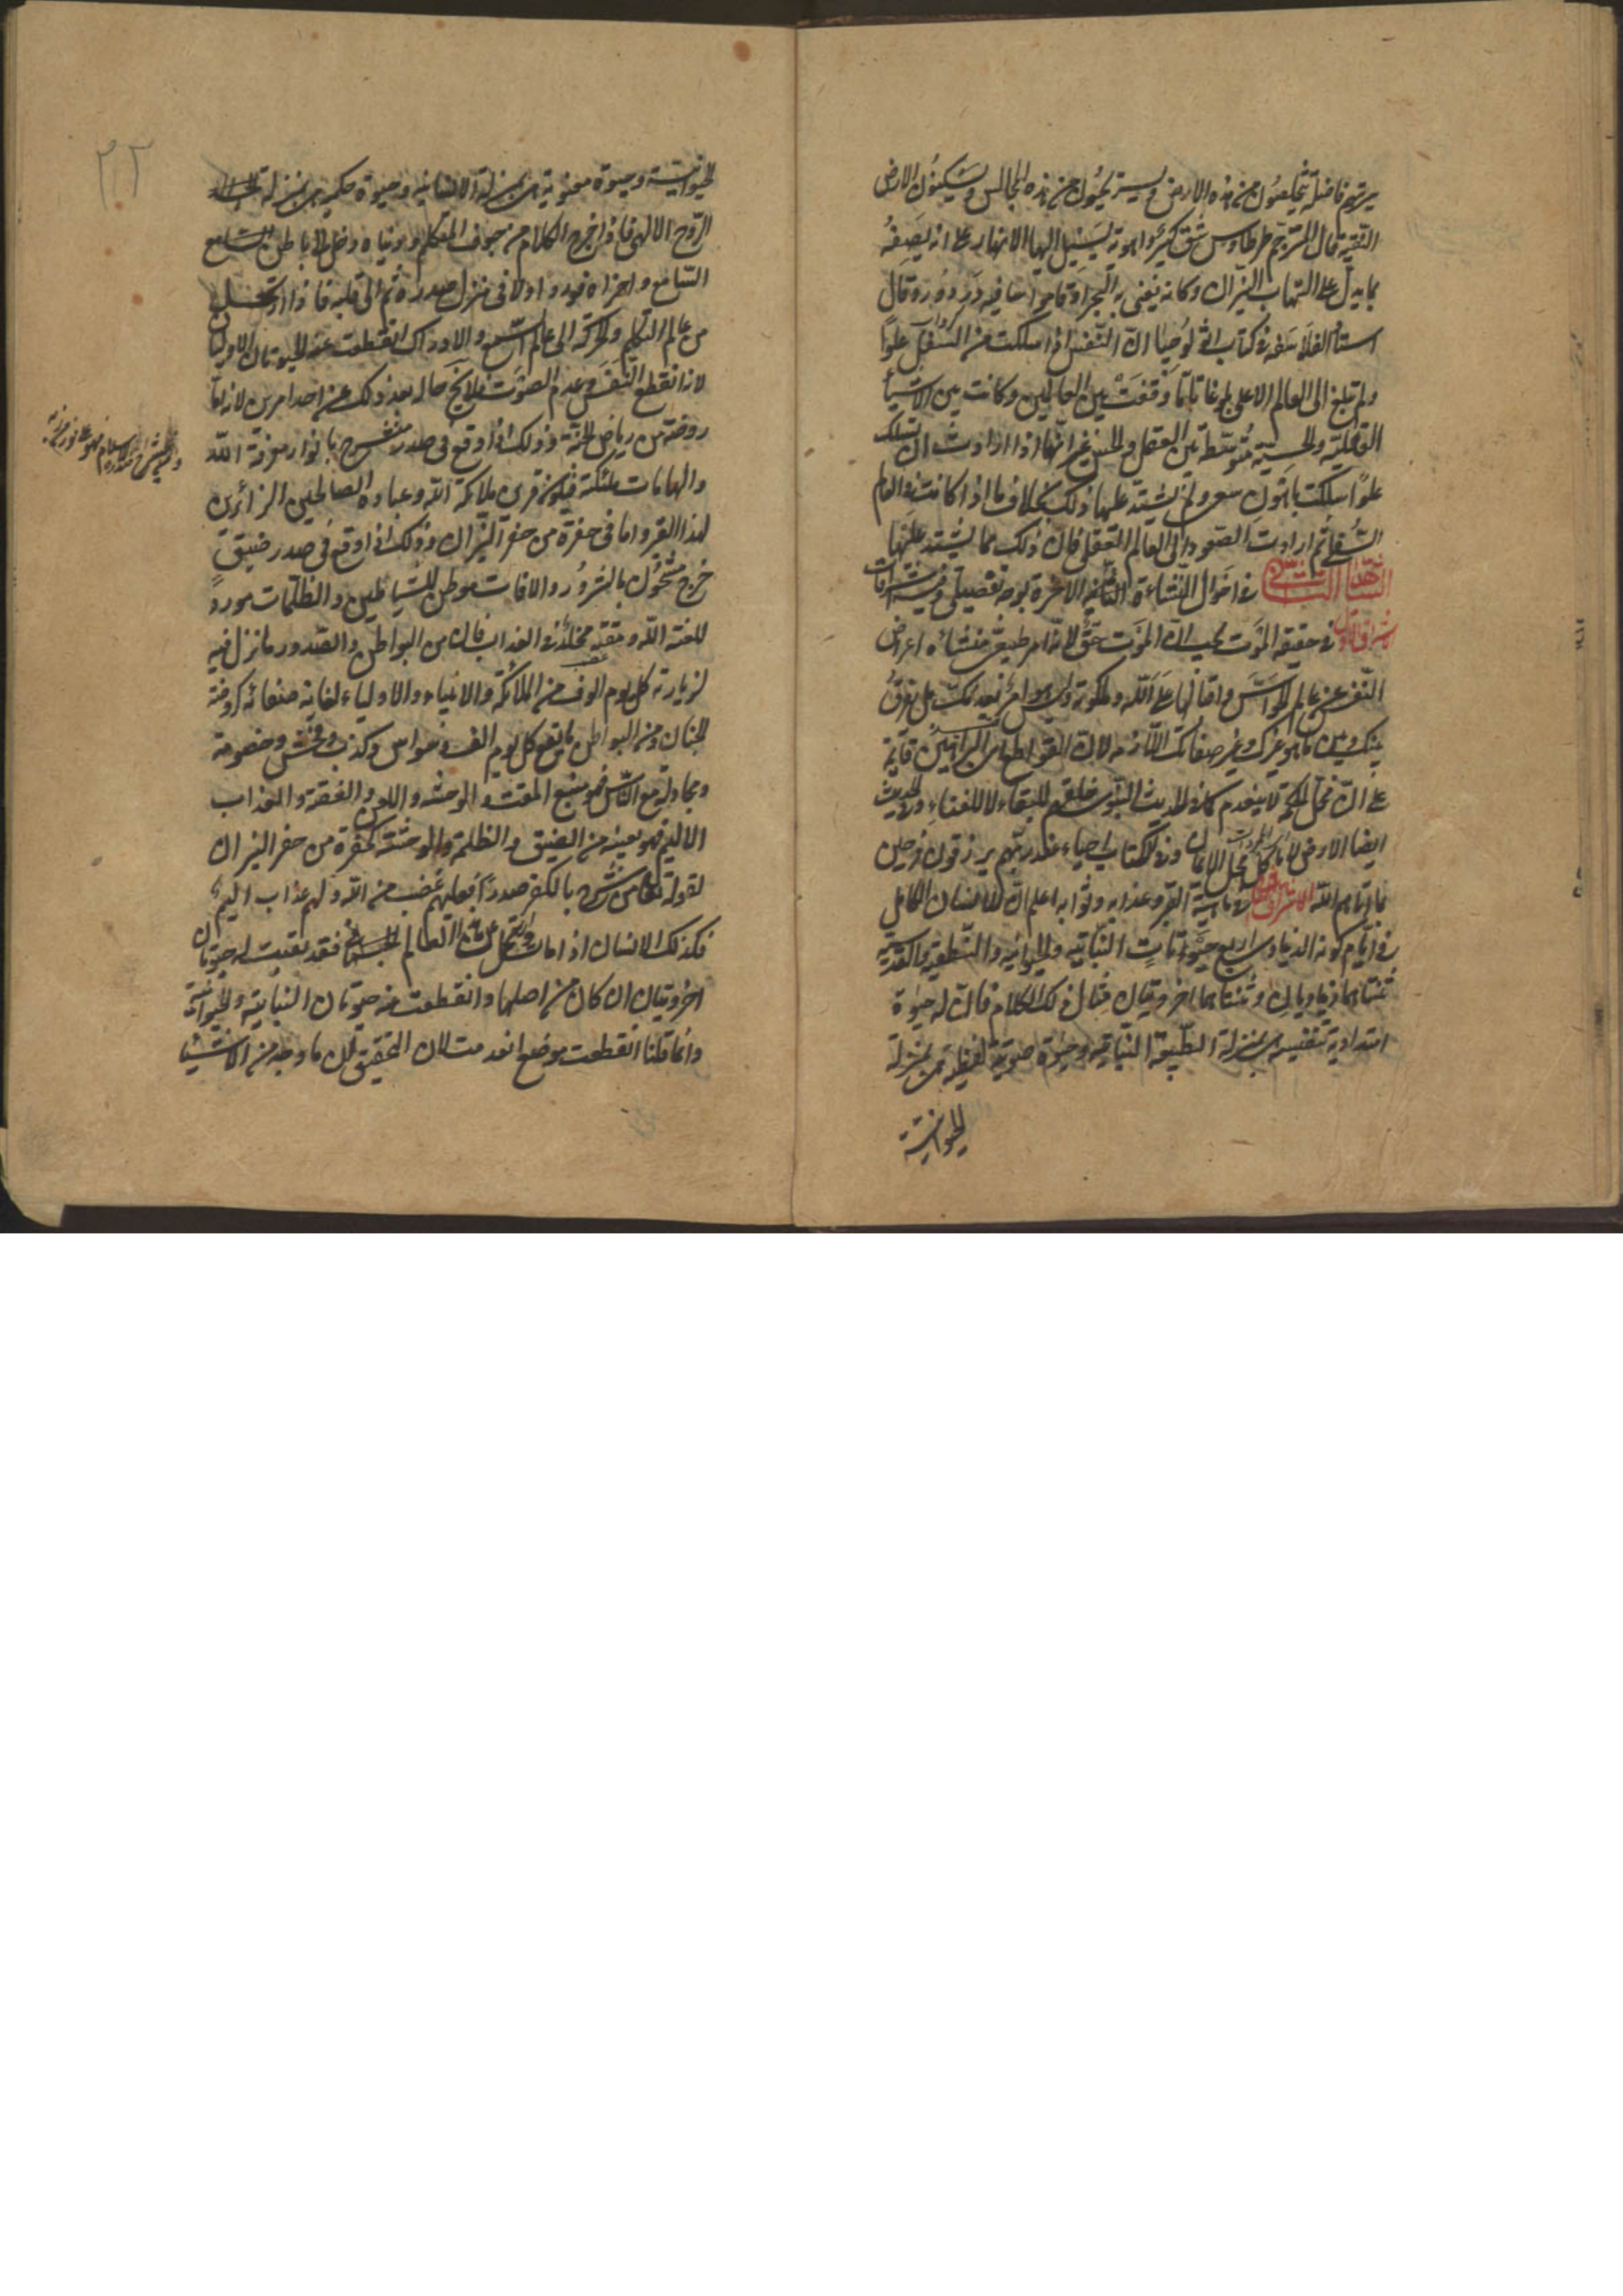 سيرتهم فاضلة يتخلصون من هذه الارض ويستريحون من هذه المجالس ويسكنون الارض
النقية قال المترجم طرطاوس شق كبير واهوية يسيل اليها الانهار على انه يصفه
بما يدل على التهاب النيران وكانه يعنى به البحر او قاموسا فيه دردور وقال
استاد الفلاسفة في كتاب اثولوجيا ان النفس اذا سلكت من السفل علوا
ولم تبلغ الى العالم الاعلى بلوغا تاما وقفت بين العالمين وكانت بين الاشياء
العقلية والحسية متوسطة بين العقل والحس غير انها اذا ارادت ان تسلك
علوا سلكت باهون سعى ولم يشتد عليها ذلك بخلاف ما اذا كانت في العالم
السفلى ثم ارادت الصعود الى العالم العقلى فان ذلك مما يشتد عليها
الشاهد الثانى في احوال النشاءة الثانية الاخرة بوجه تفصيلى وفيه اشراقات
الاشراق الاول في حقيقة الموت يجب ان الموت حق لانه امر طبيعى منشاه اعراض
النفس عن عالم الحواس واقبالها على الله وملكوته وليس امرا يعدمك بل يفرق
بينك وبين ما هو غيرك وغير صفاتك اللازمة لان القواطع من البراهين قايمة
على ان محل الحكمة لا ينعدم كما في الحديث النبوى خلقتم للبقاء لا للفناء وفي الحديث
ايضا الارض لا ياكل محل الايمان وفي الكتاب احياء عند ربهم يرزقون فرحين
بما اتاهم الله الاشراق الثانى في ماهية القبر وعذابه وثوابه اعلم ان للانسان الكامل
في ايام كونه الدنياوى اربع حيوانات النباتية والحيوانية والنطقية والقدسية
ثنتاهما دنياويان وثنتاهما اخرويتان مثال ذلك الكلام فان له حيوة
امتدادية تنفسية بمنزلة الطبيعة النباتية وحيوة صوتية لفظية هى بمنزلة
الحيوانية
٢٢
الحيوانية وحيوة معنوية هى بمنزلة الانسانية وحيوة حكمية هى بمنزلة
الروح الالهى فاذا خرج الكلام من جوف المتكلم ودنياه دخل الى باطن السامع
السامع واخراه فورد اولا فى منزل صدره ثم الى قلبه فاذا ارتحل
من عالم التكلم والحركة الى عالم السمع والادراك انقطعت عنه الحيوتان الاوليان
لانه انقطع النفس وعدم الصوت فلا يخ حاله بعد ذلك عن احد امرين لانه اما
روضة من رياض الجنة وذلك اذا وقع فى صدر منشرح بانوار معرفة الله
والهامات ملئكته فيكون قرين ملائكة الله وعباده الصالحين الزائرين
لهذا القبر واما فى حفرة من حفر النيران وذلك اذا وقع فى صدر ضيق
حرج مشحون بالشرور والافات موطن للشياطين والظلمات مورد
للعنة الله ومقته مخلدا في العذاب فان من البواطن والصدور ما نزل فيه
لزيارته كل يوم الوف من الملائكة والانبياء والاولياء لغاية صفائه كروضة
الجنان ومن البواطن ما يقع كل يوم الف وسواس وكذب وفحش وخصومة
ومجادلة مع الناس فهو منبع المقت والوحشة واللعن والغصة والعذاب
الاليم فهو بعينه من الضيق والظلمة والوحشة كحفرة من حفر النيران
لقوله تعالى من شرح بالكفر صدرا فعليهم غضب من الله ولهم عذاب اليم
فكذلك الانسان اذا مات وارتحل عن هذا العالم الجسمانى فقد بقيت له حيوتان
اخرويتان ان كان من اصلهما وانقطعت منه حيوتان النباتية والحيوانية
وانما قلنا انقطعت موضع انعدمت لان التحقيق ان كل ما وجد من الاشياء